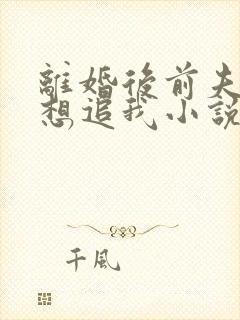 離婚後前夫
想追我小說
千風